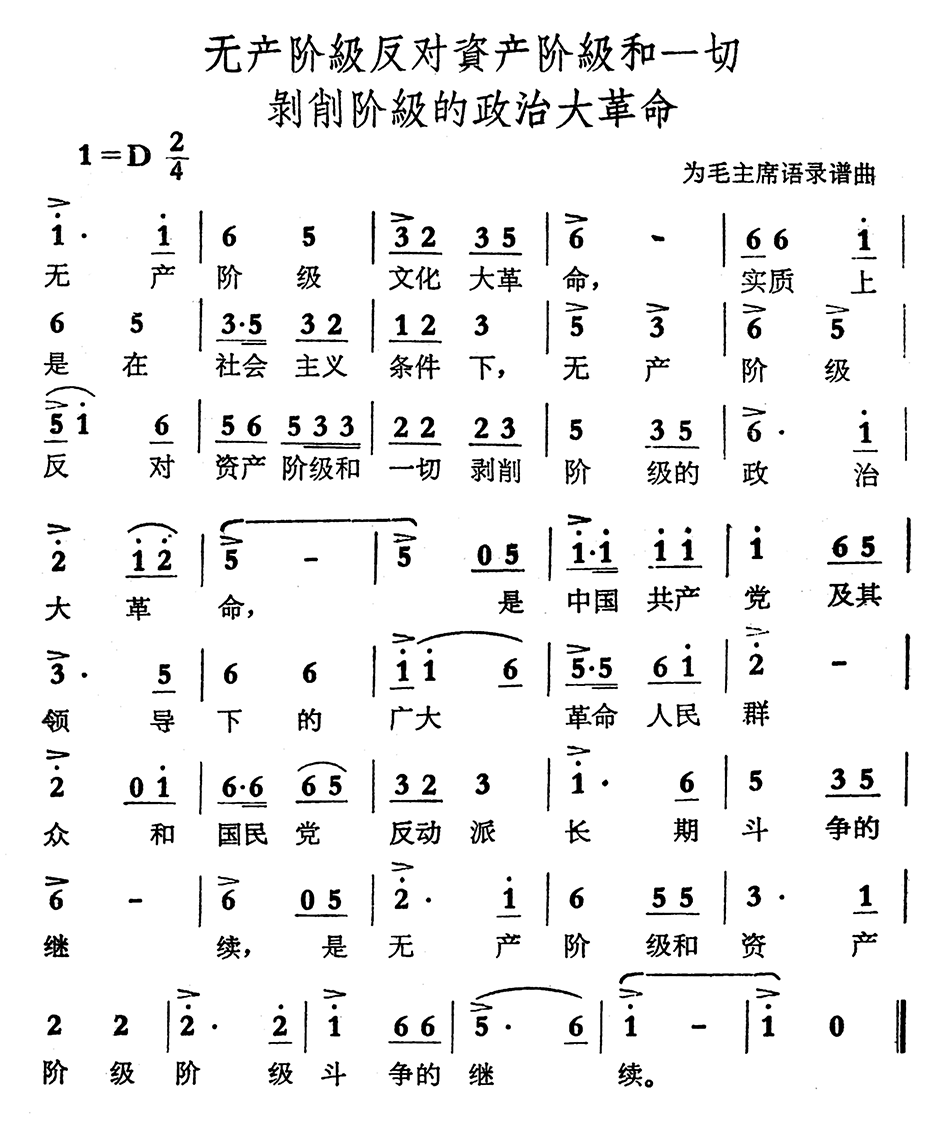 无产阶級反对資产阶級和一切
剝削阶級的政治大革命
1=D 2/4
为毛主席语录谱曲
i· i | 6 5 | 3 2 3 5 | 6 - | 6 6 i |
无 产 阶 级 文化 大革 命, 实质 上
6 5 | 3·5 3 2 | 1 2 3 | 5 3 | 6 5 |
是 在 社会 主义 条件 下, 无 产 阶 级
5 i 6 | 5 6 5 3 3 | 2 2 2 3 | 5 3 5 | 6· i |
反 对 资产 阶级和 一切 剥削 阶 级的 政 治
2̇ i 2̇ | 5 - | 5 0 5 | i·i i i | i 6 5 |
大 革 命, 是 中国 共产 党 及其
3· 5 | 6 6 | i i 6 | 5·5 6 i | 2̇ - |
领 导 下 的 广大 革命 人民 群
2̇ 0 i | 6·6 6 5 | 3 2 3 | i· 6 | 5 3 5 |
众 和 国民 党 反动 派 长 期 斗 争的
6 - | 6 0 5 | 2̇· i | 6 5 5 | 3· 1 |
继 续, 是 无 产 阶 级和 资 产
2 2 | 2̇· 2̇ | i 6 6 | 5· 6 | i - | i 0 ‖
阶 级 阶 级 斗 争的 继 续。